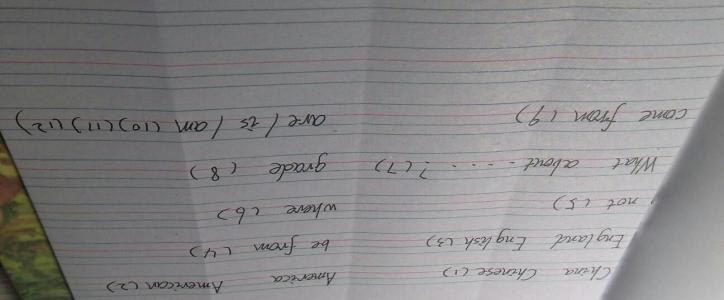 China Chinese (1) America American (2)
England English (3) be from (4)
not (5) where (6)
What about ....? (7) grade (8)
come from (9) are / is / am (10) (11) (12)